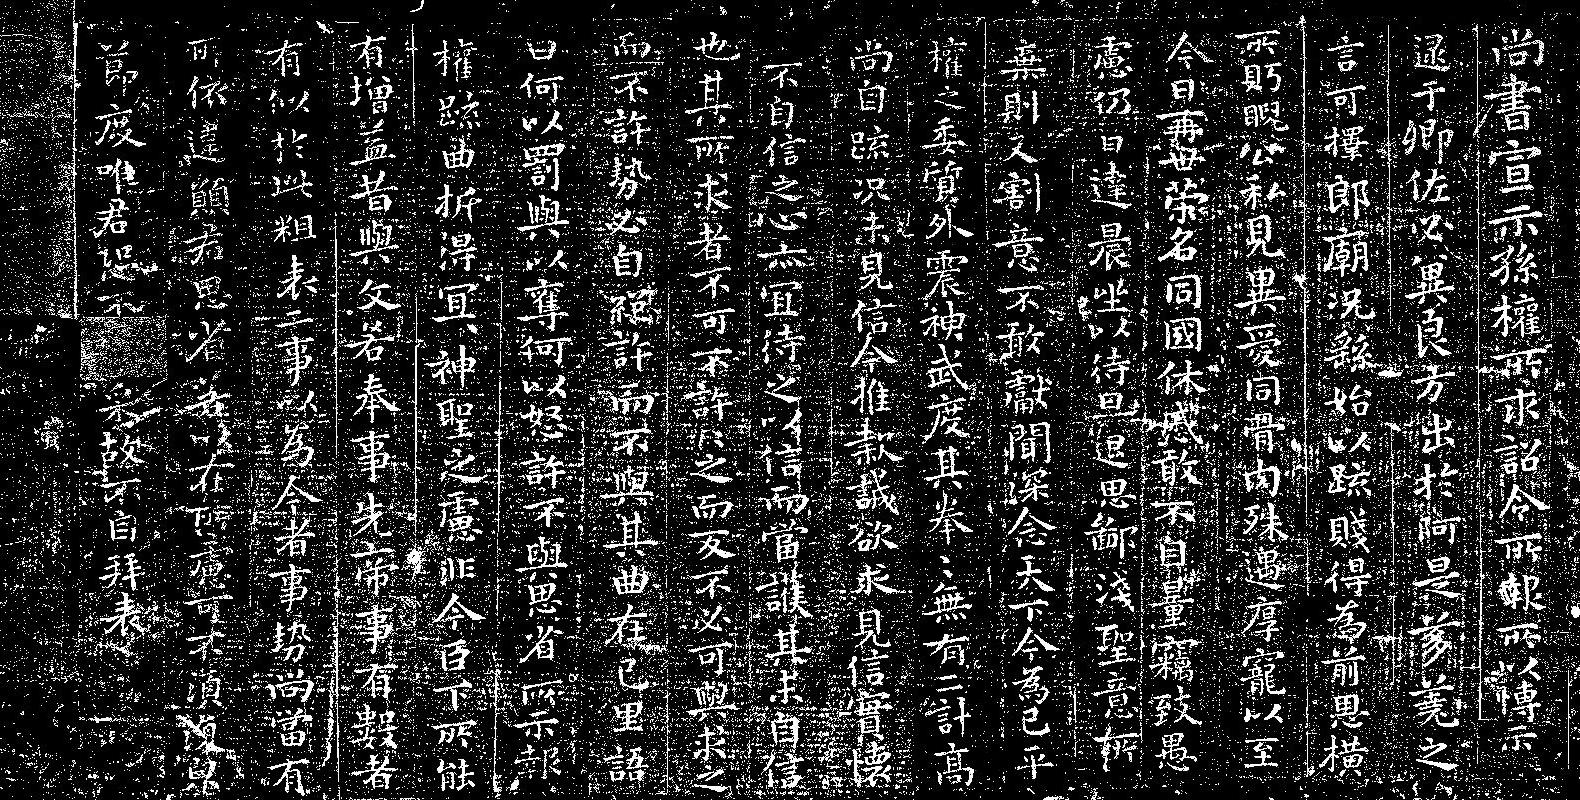 尚書宣示孫權所求詔令所報所以博示
逮于卿佐必冀良方出於阿是芻蕘之
言可擇郎廟況繇始以疏賤得為前恩橫
所眄睨公私見異愛同骨肉殊遇厚寵以至
今日再世榮名同國休慼敢不自量竊致愚
慮仍日達晨坐以待旦退思鄙淺聖意所
棄則又割意不敢獻聞深念天下今為已平
權之委質外震神武度其拳〻無有二計高
尚自疏況未見信今推款誠欲求見信實懷
不自信之心亦宜待之以信而當護其未自信
也其所求者不可不許許之而反不必可與求之
而不許勢必自絕許而不與其曲在己里語
曰何以罰與以奪何以怒許不與思省所示報
權疏曲折得宜宜神聖之慮非今臣下所能
有增益昔與文若奉事先帝事有數者
有似於此粗表二事以為今者事勢尚當有
所依違願君思省若以在所慮可不須復貌
節度唯君恐不
采故不自拜表